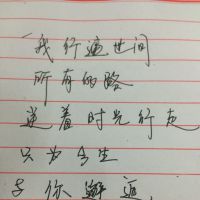 “我行遍世间
所有的路
逆着时光行走
只为今生
与你邂逅